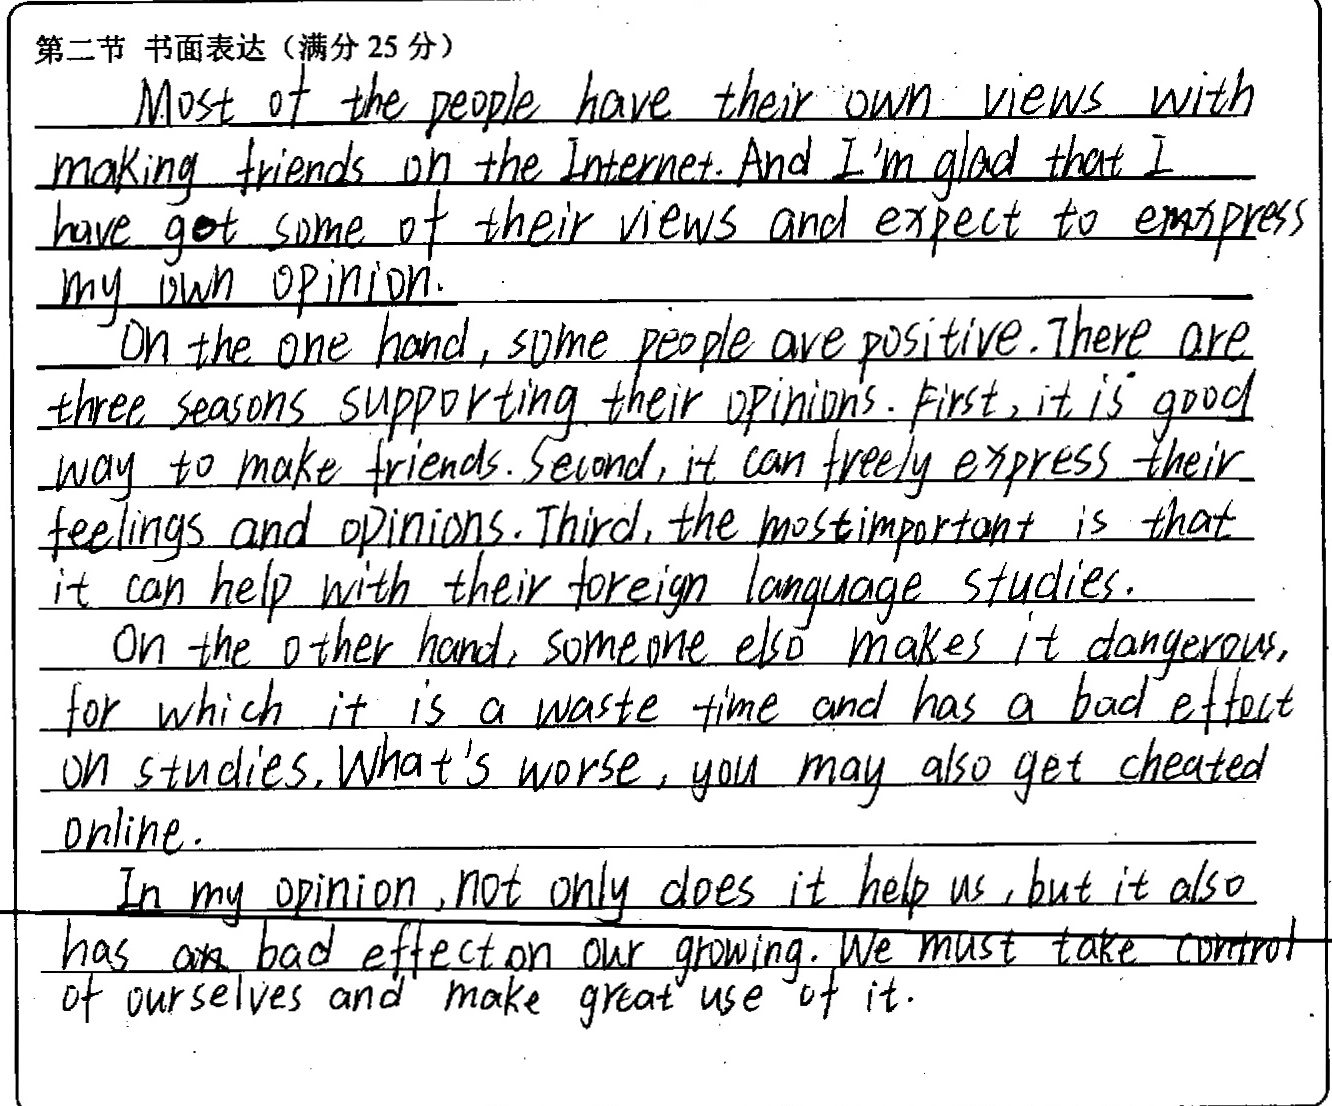 第二节 书面表达（满分 25 分）
Most of the people have their own views with
making friends on the Internet. And I'm glad that I
have got some of their views and expect to express
my own opinion.
On the one hand, some people are positive. There are
three seasons supporting their opinions. First, it is good
way to make friends. Second, it can freely express their
feelings and opinions. Third, the most important is that
it can help with their foreign language studies.
On the other hand, someone elso makes it dangerous,
for which it is a waste time and has a bad effect
on studies. What's worse, you may also get cheated
online.
In my opinion, not only does it help us, but it also
has an bad effect on our growing. We must take control
of ourselves and make great use of it.